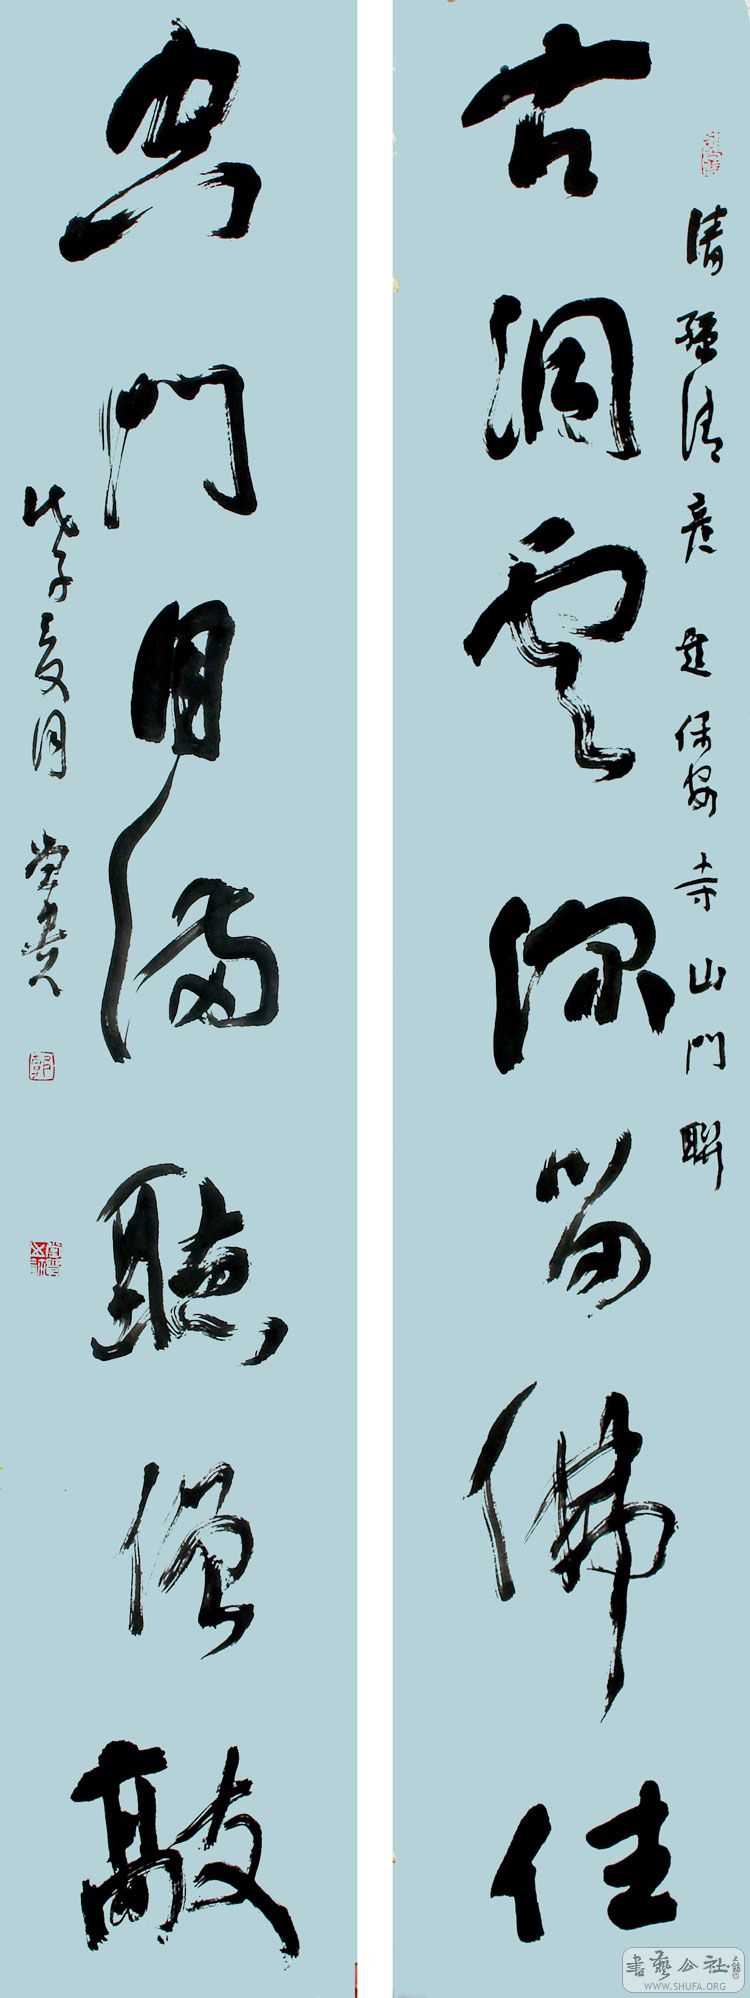 清孫清彥題保安寺山門聯
古洞雲深留佛住
空門月滿聽僧敲
戊子夏月堂貴
書藝公社
WWW.SHUFA.ORG